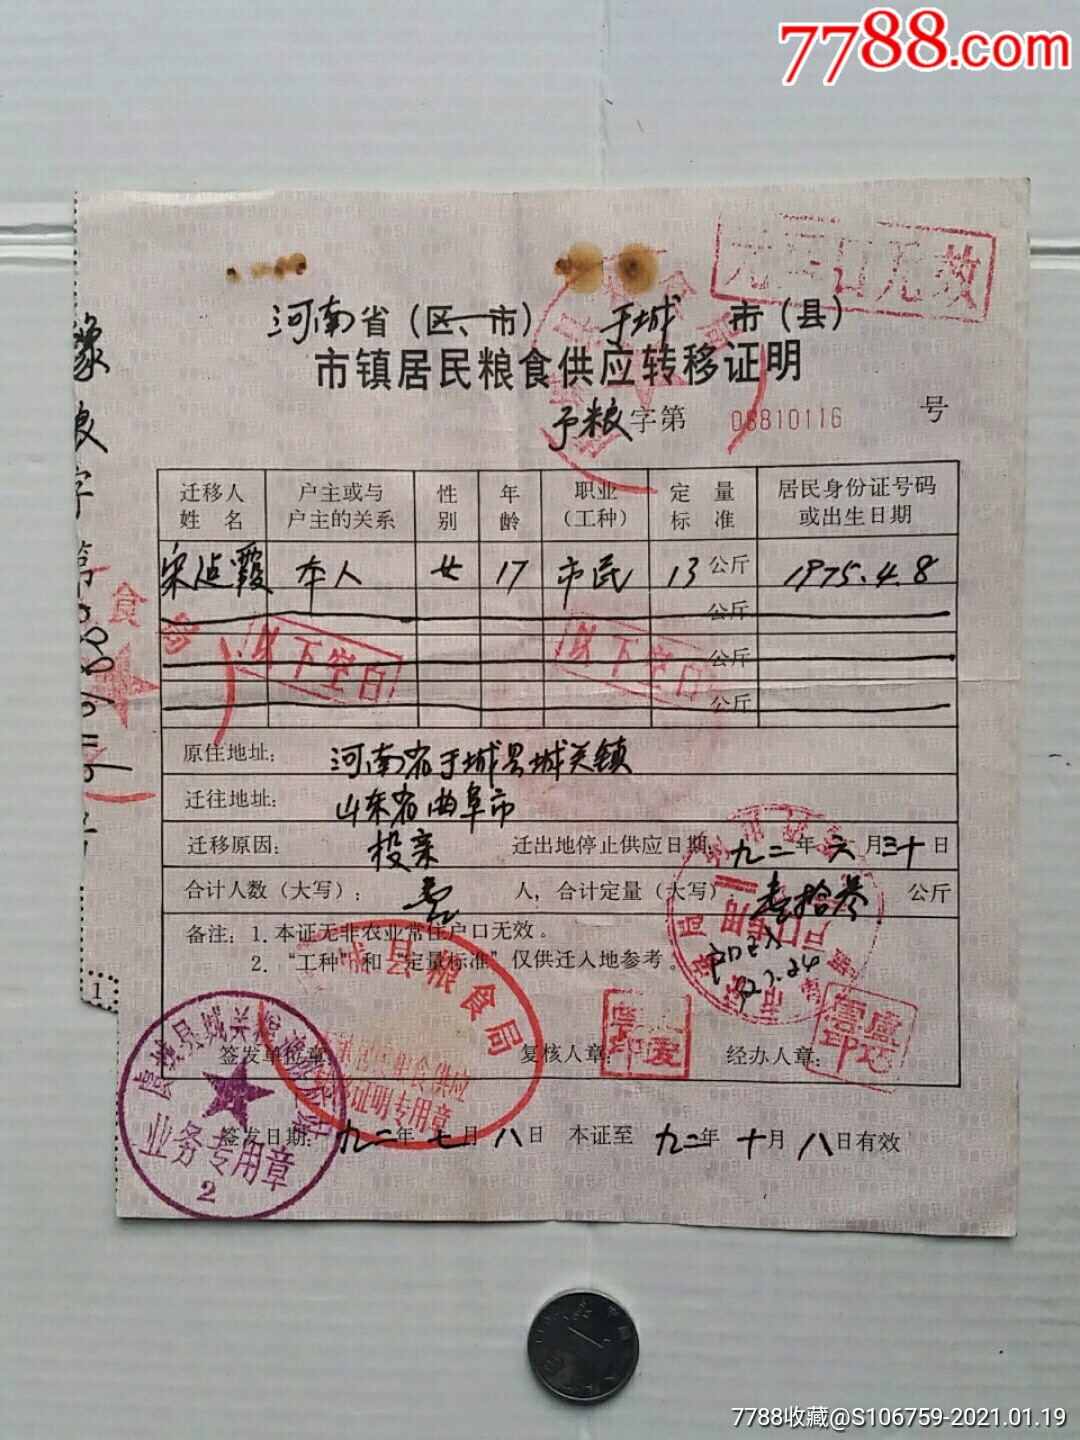 7788.com
无户口无效
河南省（区、市） 于城 市（县）
市镇居民粮食供应转移证明
予粮字第 08810116 号
迁移人姓名 户主或与户主的关系 性别 年龄 职业（工种） 定量标准 居民身份证号码或出生日期
宋贞霞 本人 女 17 市民 13 公斤 1975.4.8
公斤
以下空白 以下空白 公斤
公斤
原住地址： 河南省于城县城关镇
迁往地址： 山东省曲阜市
迁移原因： 投亲 迁出地停止供应日期： 九二年六月三十日
合计人数（大写）： 壹 人，合计定量（大写）： 壹拾叁 公斤
备注：1. 本证无非农业常住户口无效。
2. “工种”和“定量标准”仅供迁入地参考。
县粮食局
粮食供应
转移证明专用章
签发单位章： 复核人章： 经办人章：
签发日期： 九二年七月八日 本证至 九二年十月八日有效
业务专用章
2
豫粮字第
1
7788收藏@S106759-2021.01.19